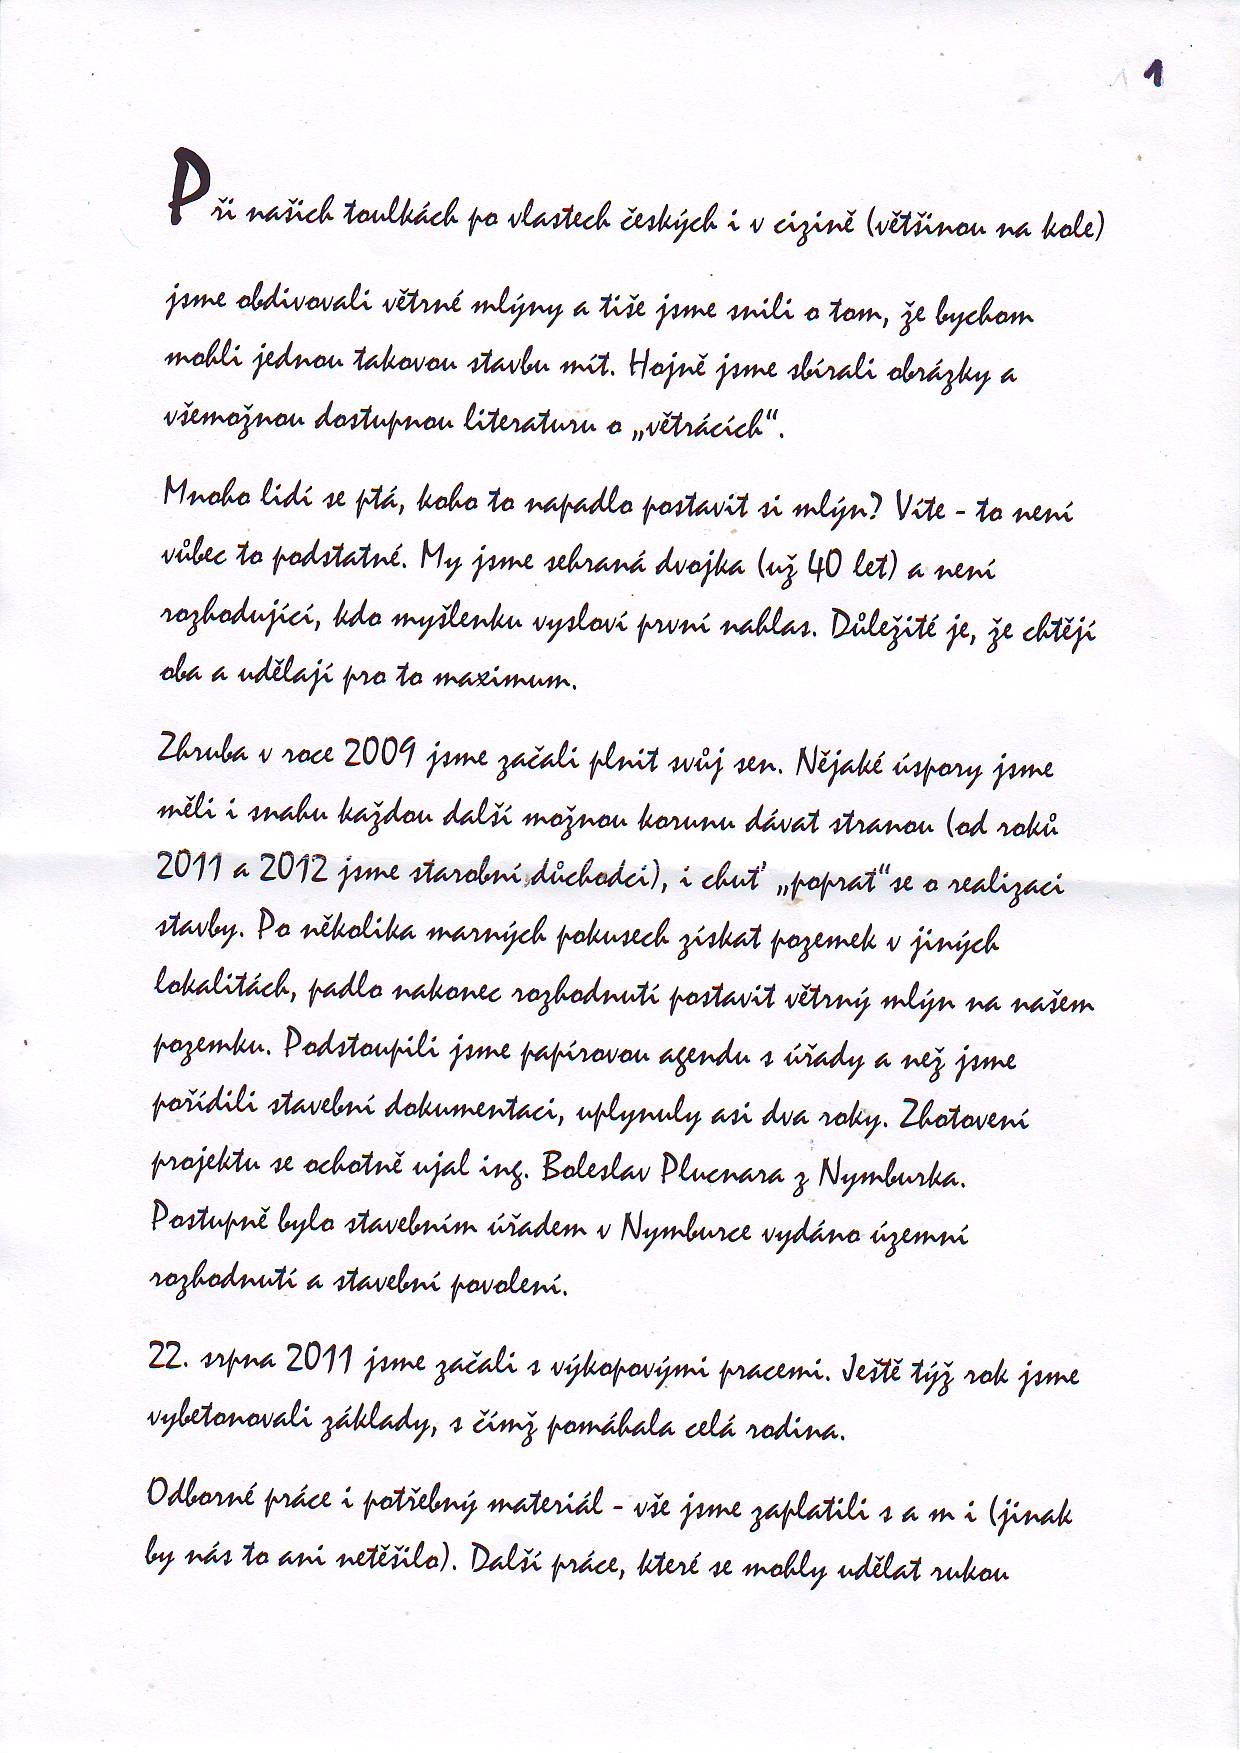 1
Při našich toulkách po vlastech českých i v cizině (většinou na kole)
jsme obdivovali větrné mlýny a tiše jsme snili o tom, že bychom
mohli jednou takovou stavbu mít. Hojně jsme sbírali obrázky a
všemožnou dostupnou literaturu o „větrácích“.
Mnoho lidí se ptá, koho to napadlo postavit si mlýn? Víte - to není
vůbec to podstatné. My jsme sehraná dvojka (už 40 let) a není
rozhodující, kdo myšlenku vysloví první nahlas. Důležité je, že chtějí
oba a udělají pro to maximum.
Zhruba v roce 2009 jsme začali plnit svůj sen. Nějaké úspory jsme
měli i snahu každou další možnou korunu dávat stranou (od roků
2011 a 2012 jsme starobní důchodci), i chuť „poprat“se o realizaci
stavby. Po několika marných pokusech získat pozemek v jiných
lokalitách, padlo nakonec rozhodnutí postavit větrný mlýn na našem
pozemku. Podstoupili jsme papírovou agendu s úřady a než jsme
pořídili stavební dokumentaci, uplynuly asi dva roky. Zhotovení
projektu se ochotně ujal ing. Boleslav Plucnara z Nymburka.
Postupně bylo stavebním úřadem v Nymburce vydáno územní
rozhodnutí a stavební povolení.
22. srpna 2011 jsme začali s výkopovými pracemi. Ještě týž rok jsme
vybetonovali základy, s čímž pomáhala celá rodina.
Odborné práce i potřebný materiál - vše jsme zaplatili s a m i (jinak
by nás to ani netěšilo). Další práce, které se mohly udělat rukou